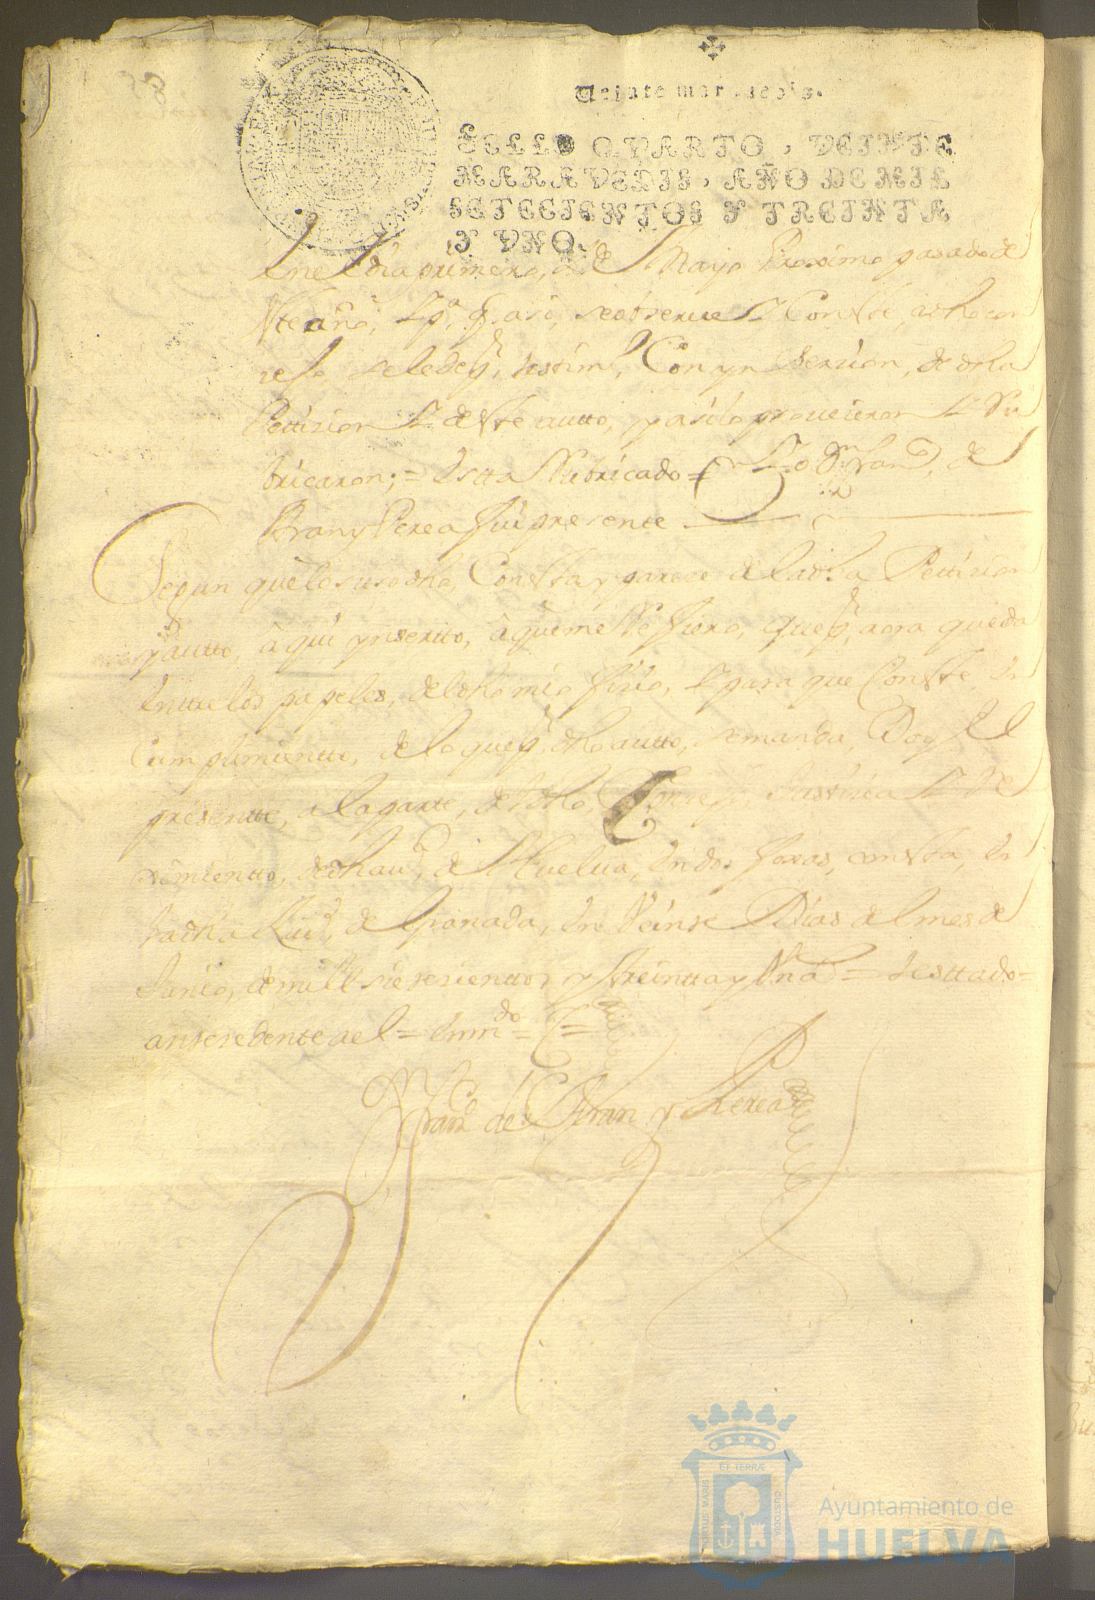 Veinte maravedis.
SELLO QVARTO, VEINTE
MARAVEDIS, AÑO DE MIL
SETECIENTOS Y TREINTA
Y VNO.
en el dia primero, de Mayo Proximo pasado de
este año, y que así, se observe y Conste, y dho con
sejo se le de testim. Con yn sersion, de dha
Petizion y deste autto, y asi lo proueieron y Ru
bricaron; = esta Rubricado = Yo Dn. Fran.co de
Bran y Perea fui presente
Segun que lo susodho, Consta y parece de la dha Petizion
y autto, aqui ynserito, à que me Refiero, que aora queda
entre los papeles, del dho mio ofizio, y para que Conste en
Cumplimientto, de lo que por dho autto, se manda, Doy el
presentte, a la parte, de dho, Conzejo Justicia y Re
ximientto, de dha de Huelua, en dos foxas, con esta, en
la dha Ciud, de Granada, en Veinte Dias del mes de
Junio, de mill setecientos y treintta y Uno = testtado =
antesedente del = enmdo =
Franco de Bran y Perea
ET TERRÆ
PORTUS MARIS
CUSTODIA
Ayuntamiento de
HUELVA